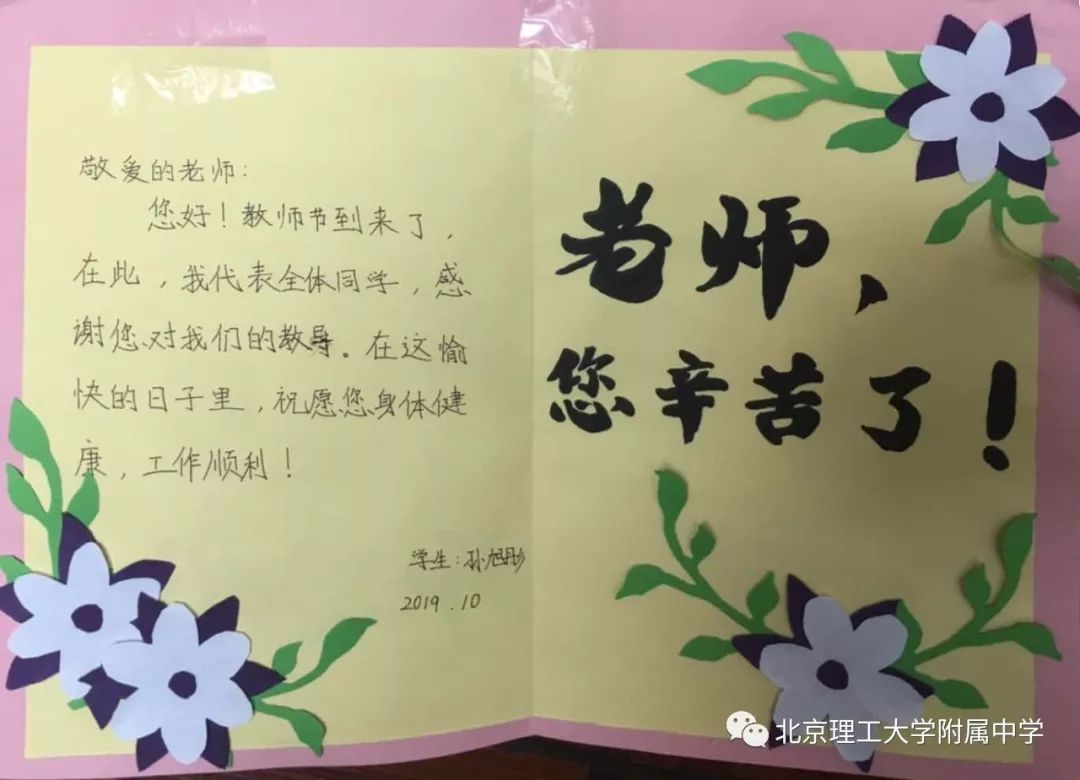 敬爱的老师：
您好！教师节到来了，
在此，我代表全体同学，感
谢您对我们的教导。在这愉
快的日子里，祝愿您身体健
康，工作顺利！
学生：孙旭彤
2019.10
老师、
您辛苦了！
北京理工大学附属中学